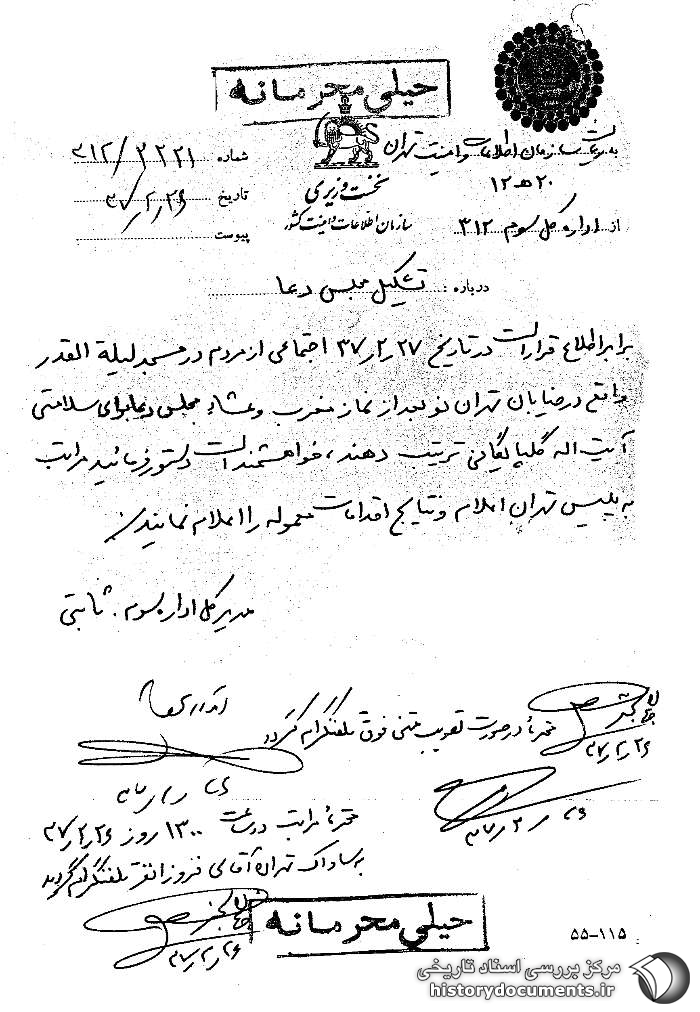 خیلی محرمانه
به ریاست سازمان اطلاعات و امنیت تهران
۲۰ هـ ۱۲
از اداره کل سوم ۳۱۲
نخست وزیری
سازمان اطلاعات و امنیت کشور
شماره ۳۱۲/۲۲۲۱
تاریخ ۳۷/۲/۲۶
پیوست
درباره : تشکیل مجلس دعا
برابر اطلاع قرار است در تاریخ ۳۷/۲/۲۷ اجتماعی از مردم در مسجد لیلة القدر
واقع در خیابان تهران نو بعد از نماز مغرب و عشاء مجلس دعا برای سلامتی
آیت اله گلپایگانی ترتیب دهند، خواهشمند است دستور فرمائید مراتب
به پلیس تهران اعلام و نتایج اقدامات معموله را اعلام نمایند
مدیر کل اداره سوم . ثابتی
محترماً در صورت تصویب متن فوق تلفنگرام گردد
۳۷/۲/۲۶
۳۷/۲/۲۶
۳۷/۲/۲۶
محترماً مراتب در ساعت ۱۳۰۰ روز ۳۷/۲/۲۶
به ساواک تهران آقای فروزانفر تلفنگرام گردید
۳۷/۲/۲۶
خیلی محرمانه
۵۵-۱۱۵
مرکز بررسی اسناد تاریخی
historydocuments.ir